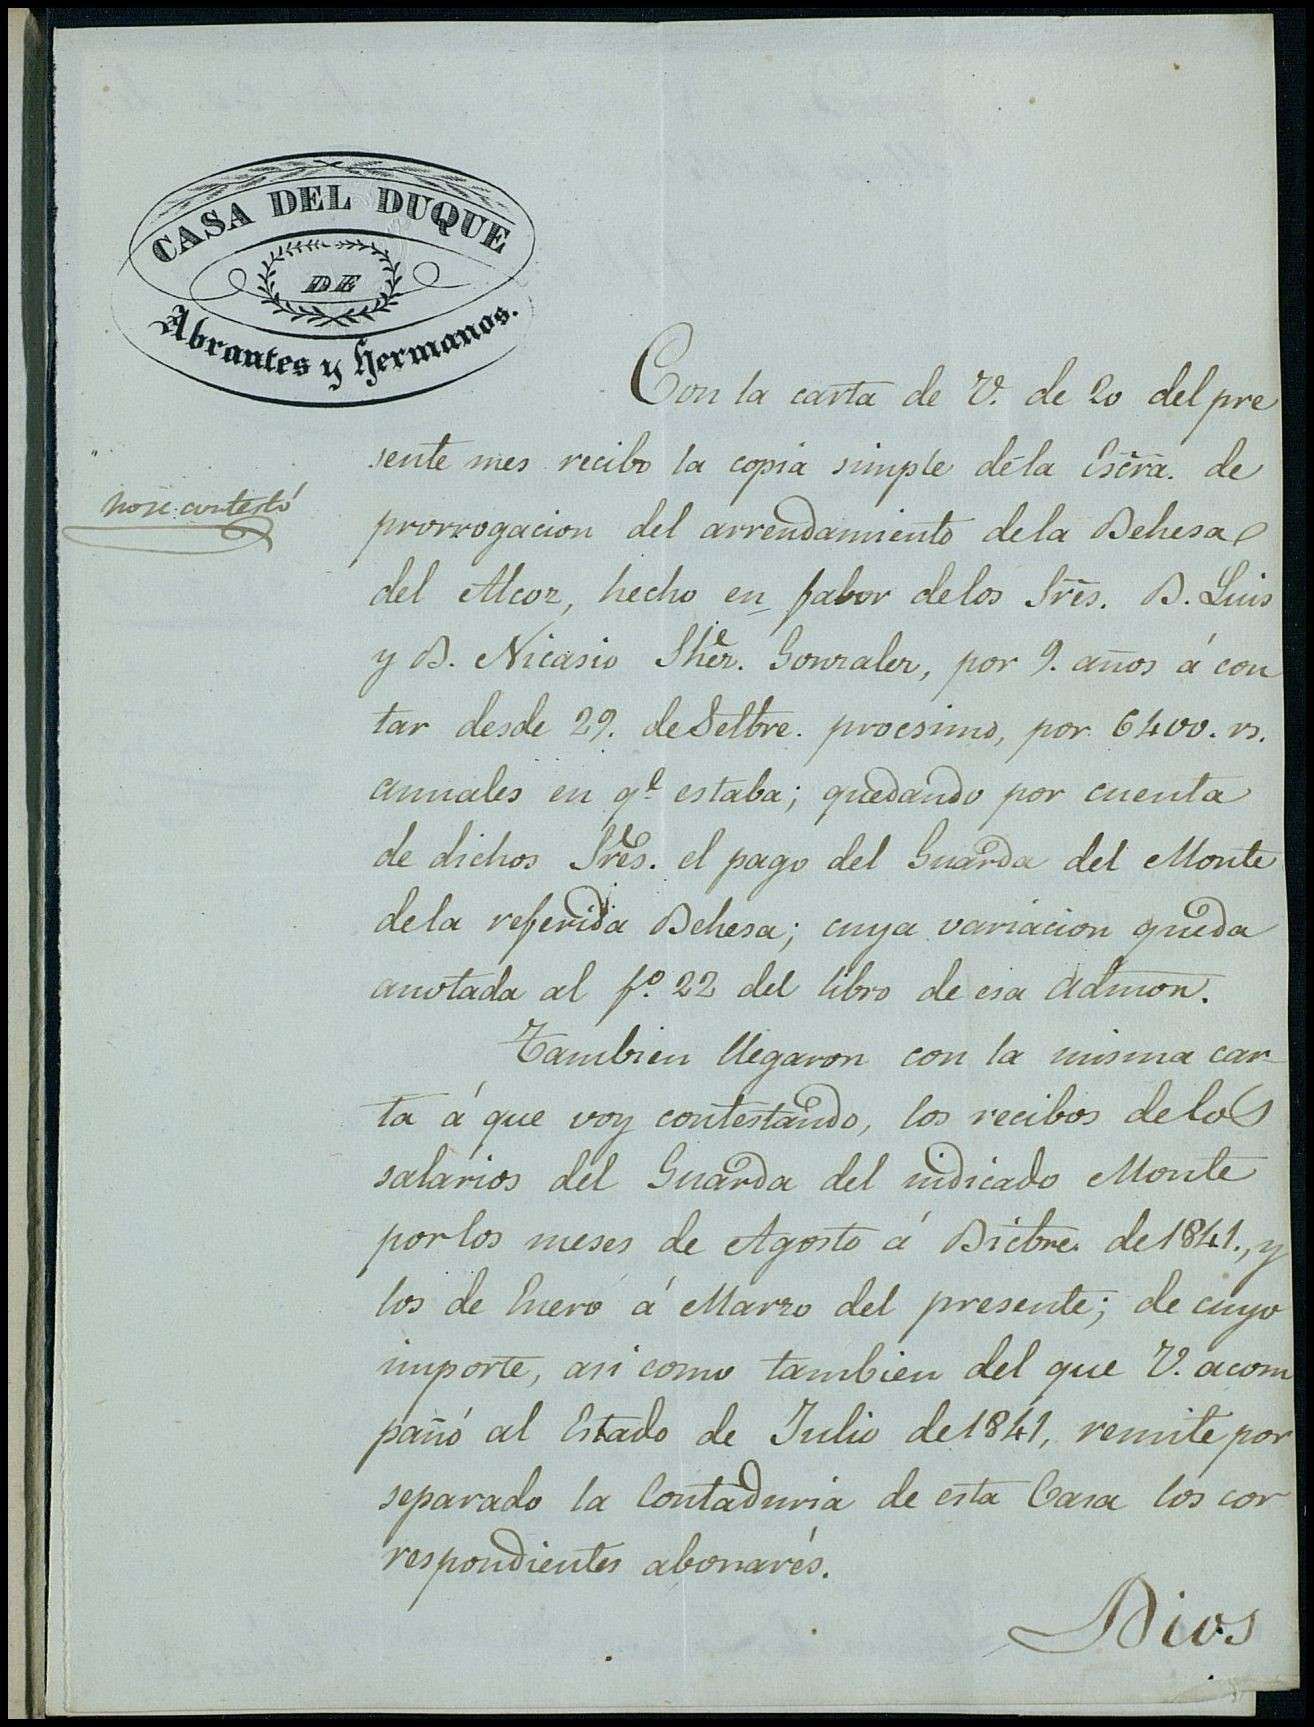 CASA DEL DUQUE
DE
Abrantes y Hermanos.
Con la carta de V. de 20 del pre
sente mes recibo la copia simple de la Escra. de
no se contestó
prorrogacion del arrendamiento de la Dehesa
del Alcoz, hecho en fabor de los Sres. D. Luis
y D. Nicasio Shez. Gonzalez, por 9. años á con
tar desde 29. de Setbre. procsimo, por 6400. rs.
annales en qe. estaba; quedando por cuenta
de dichos Sres. el pago del Guarda del Monte
de la referida Dehesa; cuya variacion queda
anotada al fo. 22 del libro de esa Admon.
Tambien llegaron con la misma car
ta á que voy contestando, los recibos de los
salarios del Guarda del indicado Monte
por los meses de Agosto á Dicbre. de 1841., y
los de Enero á Marzo del presente; de cuyo
importe, asi como tambien del que V. acom
pañó al Estado de Julio de 1841, remite por
separado la Contaduria de esta Casa los cor
respondientes abonarés.
Dios